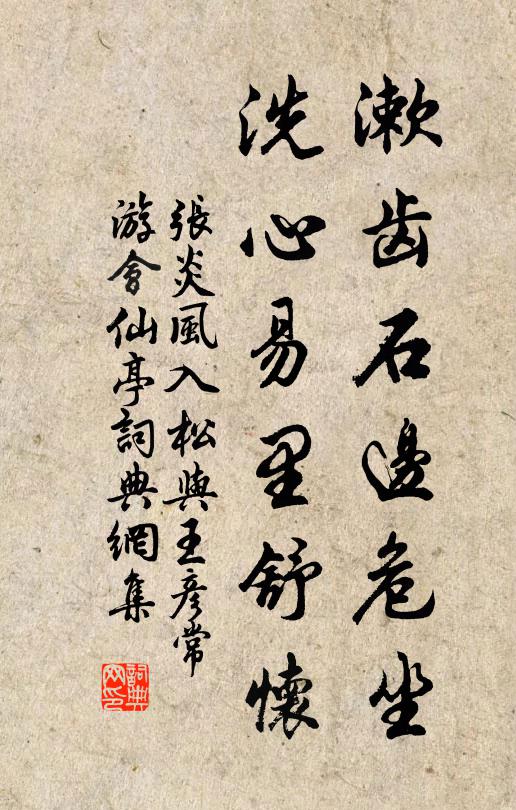 漱齿石邊危坐
洗心易里舒懷
張炎風入松與王彥常
游會仙亭詞典網集
詞典网印